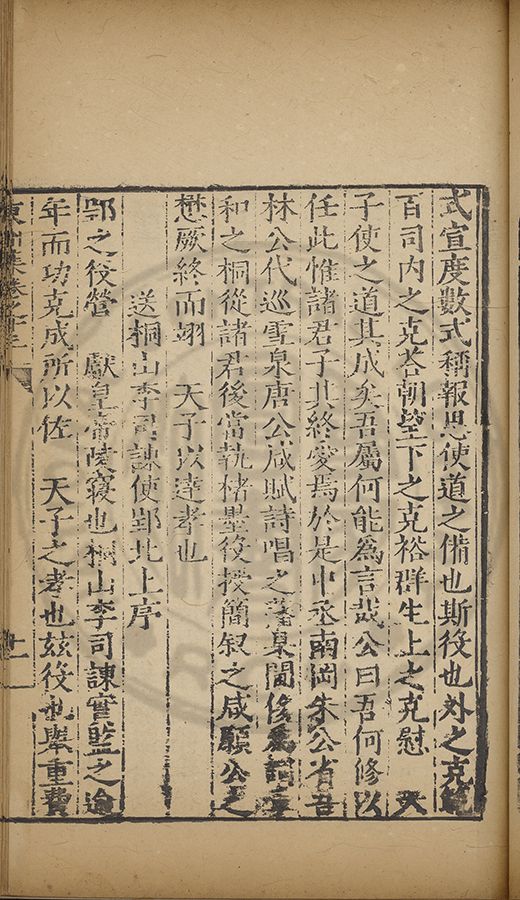 式宣度數式稱報恩使道之備也斯役也外之克籠
百司內之克荅朝望下之克裕群生上之克慰　天
子使之道其成矣吾屬何能爲言哉公曰吾何修以
任此惟諸君子其終愛焉於是中丞南岡朱公省吾
林公代巡雪泉唐公咸賦詩唱之藩臬閫俊爲詩章
和之桐從諸君後當執楮墨役授簡叙之咸願公之
懋厥終而翊　天子以達孝也
送桐山李司諫使郢北上序
郢之役營　獻皇帝陵寢也桐山李司諫實監之逾
年而功克成所以佐　天子之孝也兹役也舉重費
集卷之
十一